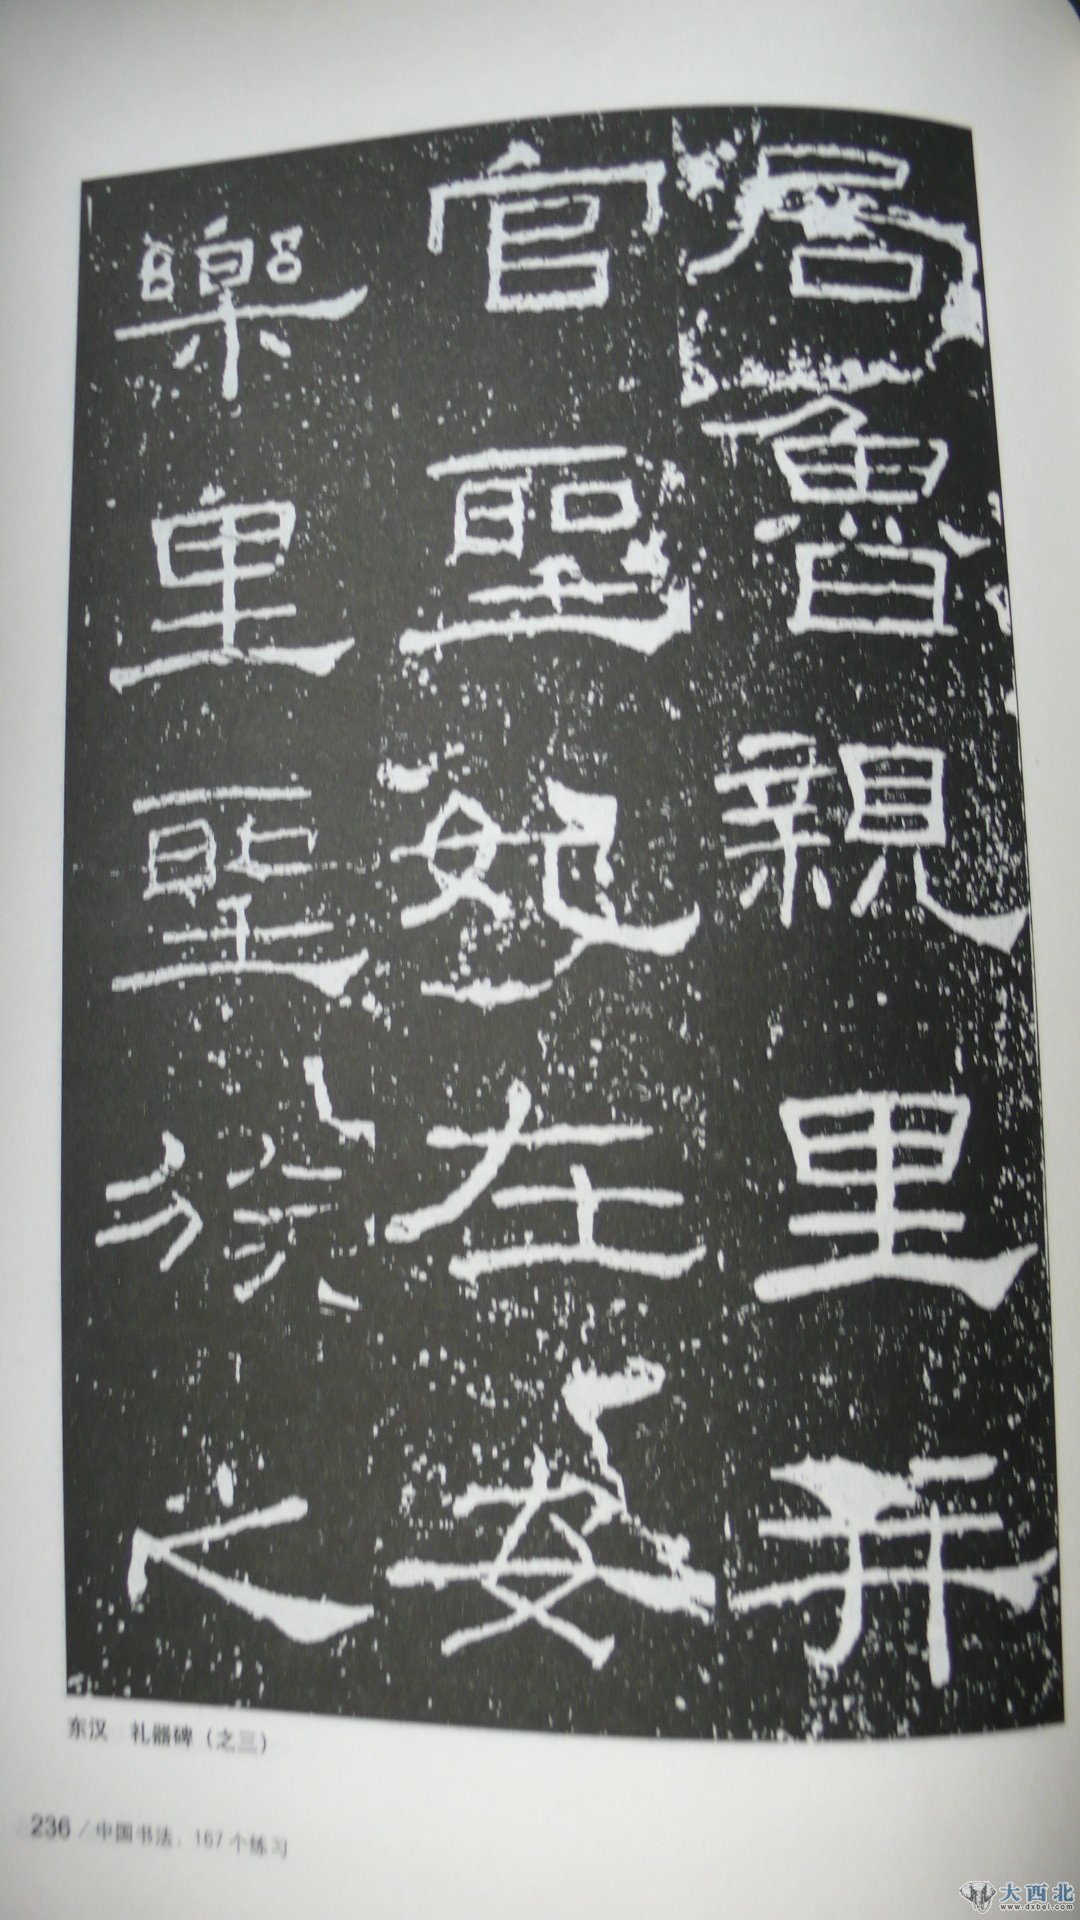 居魯親里并
官聖妃在安
樂里聖族之
东汉 礼器碑（之三）
236 / 中国书法：167个练习
大西北
www.dxbei.com